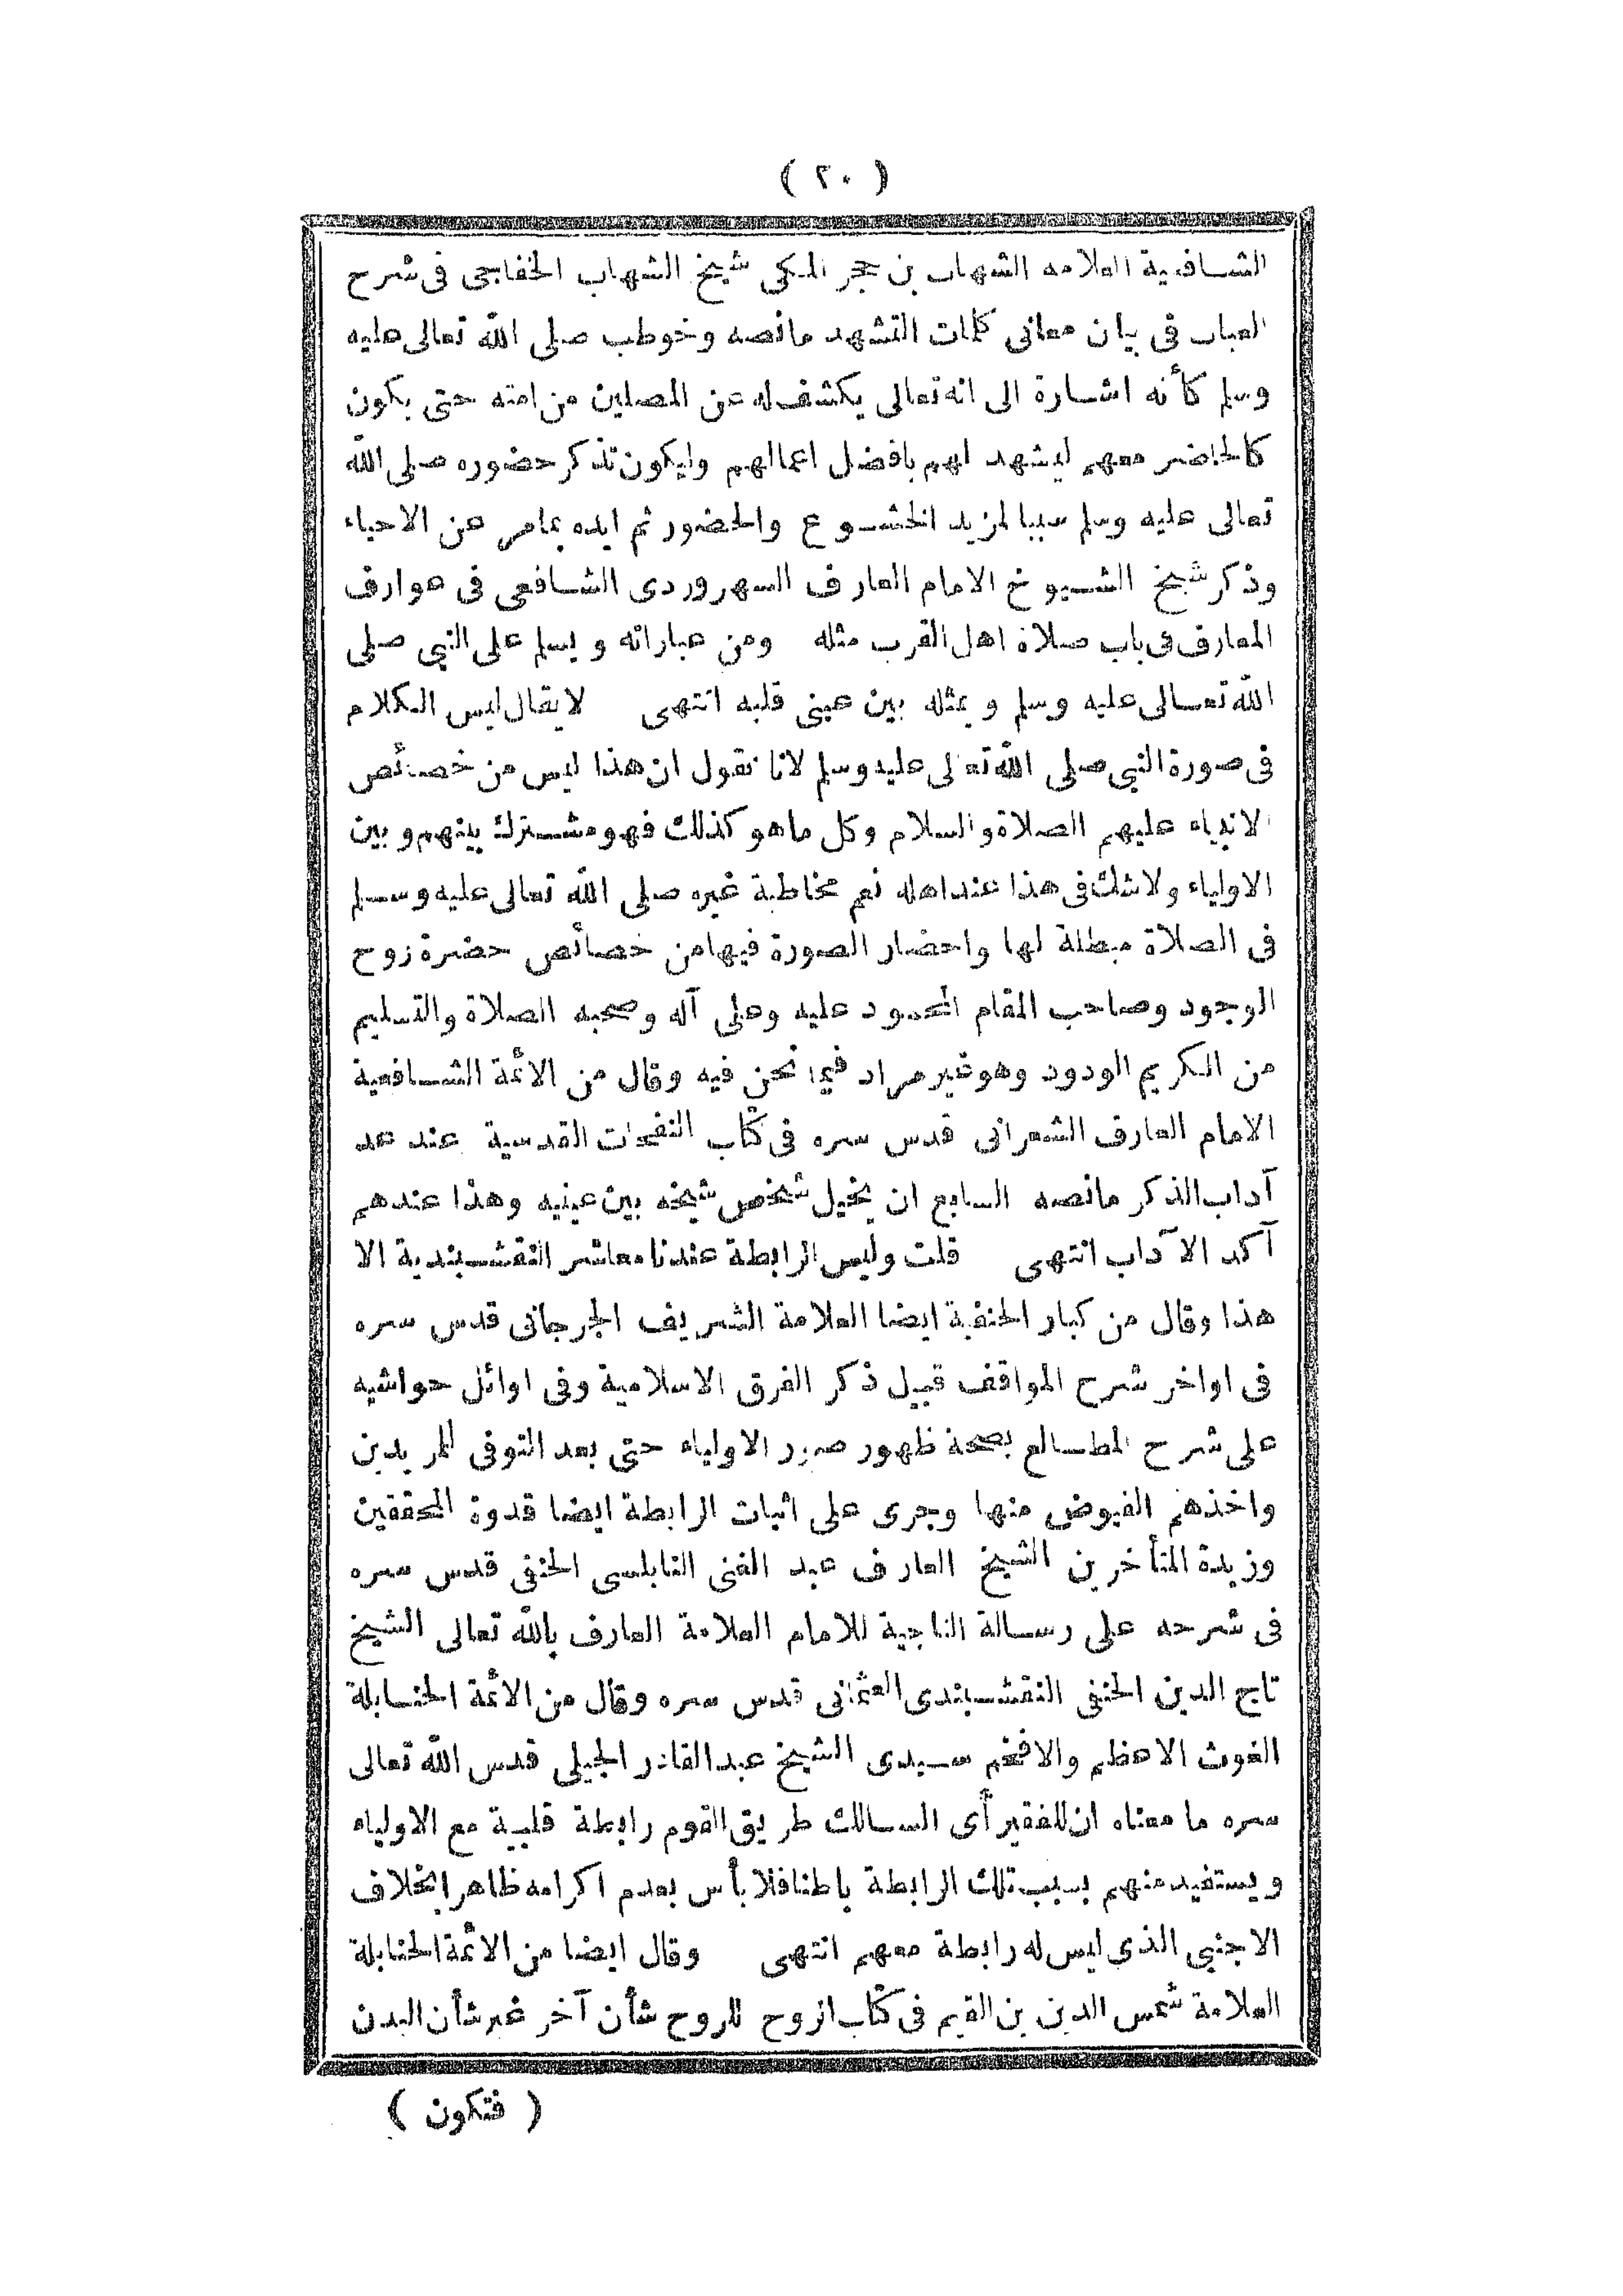 ( ٢٠ )
الشافعية العلامه الشهاب بن حجر المكى شيخ الشهاب الخفاجى فى شرح
العباب فى بيان معانى كلمات التشهد مانصه وخوطب صلى الله تعالى عليه
وسلم كأنه اشارة الى انه تعالى يكشف له عن المصلين من امته حتى يكون
كالحاضر معهم ليشهد لهم بافضل اعمالهم وليكون تذكر حضوره صلى الله
تعالى عليه وسلم سببا لمزيد الخشوع والحضور ثم ايده بمامر عن الاحياء
وذكر شيخ الشيوخ الامام العارف السهروردى الشافعى فى عوارف
المعارف فى باب صلاة اهل القرب مثله ومن عباراته ويسلم على النبى صلى
الله تعالى عليه وسلم ويمثله بين عينى قلبه انتهى لايقال ليس الكلام
فى صورة النبى صلى الله تعالى عليه وسلم لانا نقول ان هذا ليس من خصائص
الانبياء عليهم الصلاة والسلام وكل ماهو كذلك فهو مشترك بينهم وبين
الاولياء ولاشك فى هذا عند اهله نعم مخاطبة غيره صلى الله تعالى عليه وسلم
فى الصلاة مبطلة لها واحضار الصورة فيها من خصائص حضرة زوح
الوجود وصاحب المقام المحمود عليه وعلى آله وصحبه الصلاة والتسليم
من الكريم الودود وهو غير مراد فيما نحن فيه وقال من الائمة الشافعية
الامام العارف الشعرانى قدس سره فى كتاب النفحات القدسية عند عد
آداب الذكر مانصه السابع ان يخيل شخص شيخه بين عينيه وهذا عندهم
آكد الآداب انتهى قلت وليس الرابطة عندنا معاشر النقشبندية الا
هذا وقال من كبار الحنفية ايضا العلامة الشريف الجرجانى قدس سره
فى اواخر شرح المواقف قبيل ذكر الفرق الاسلامية وفى اوائل حواشيه
على شرح المطالع بصحة ظهور صور الاولياء حتى بعد التوفى للمريدين
واخذهم الفيوض منها وجرى على اثبات الرابطة ايضا قدوة المحققين
وزبدة المتأخرين الشيخ العارف عبد الغنى النابلسى الحنفى قدس سره
فى شرحه على رسالة التاجية للامام العلامة العارف بالله تعالى الشيخ
تاج الدين الحنفى النقشبندى العثمانى قدس سره وقال من الائمة الحنابلة
الغوث الاعظم والافخم سيدى الشيخ عبد القادر الجيلى قدس الله تعالى
سره ما معناه ان للفقير أى السالك طريق القوم رابطة قلبية مع الاولياء
ويستفيد منهم بسبب تلك الرابطة باطنا فلا بأس بعدم اكرامه ظاهرا بخلاف
الاجنبى الذى ليس له رابطة معهم انتهى وقال ايضا من الائمة الحنابلة
العلامة شمس الدين بن القيم فى كتاب الروح للروح شأن آخر غير شأن البدن
( فتكون )